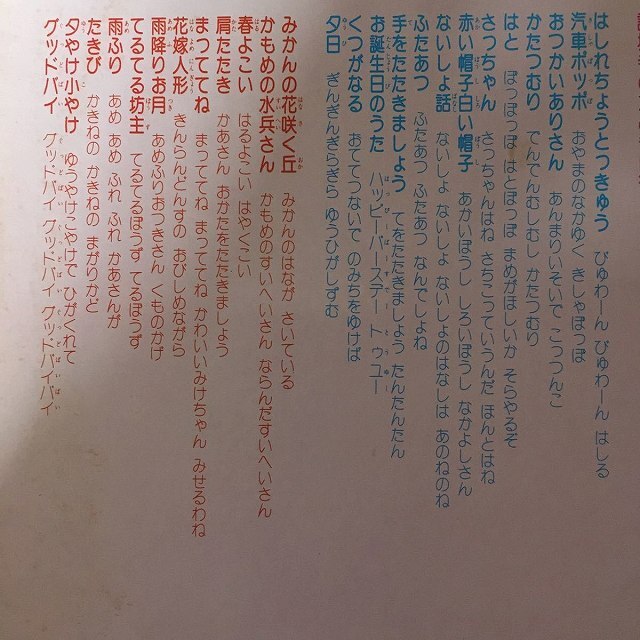 はしれちょうとっきゅう びゅわーん びゅわーん はしる
汽車ポッポ おやまのなかゆく きしゃぽっぽ
おつかいありさん あんまりいそいで こっつんこ
かたつむり でんでんむしむし かたつむり
はと ぽっぽっぽ はとぽっぽ まめがほしいか そらやるぞ
さっちゃん さっちゃんはね さちこっていうんだ ほんとはね
赤い帽子白い帽子 あかいぼうし しろいぼうし なかよしさん
ないしょ話 ないしょ ないしょ ないしょのはなしは あのねのね
ふたあつ ふたあつ ふたあつ なんでしょね
手をたたきましょう てをたたきましょう たんたんたん
お誕生日のうた ハッピーバースデー トゥユー
くつがなる おててつないで のみちをゆけば
夕日 ぎんぎんぎらぎら ゆうひがしずむ
みかんの花咲く丘 みかんのはなが さいている
かもめの水兵さん かもめのすいへいさん ならんだすいへいさん
春よこい はるよこい はやくこい
肩たたき かあさん おかたをたたきましょう
まっててね まっててね まっててね かわいいみけちゃん みせるわね
花嫁人形 きんらんどんすの おびしめながら
雨降りお月 あめふりおつきさん くものかげ
てるてる坊主 てるてるぼうず てるぼうず
雨ふり あめ あめ ふれ ふれ かあさんが
たきび かきねの かきねの まがりかど
夕やけ小やけ ゆうやけこやけで ひがくれて
グッドバイ グッドバイ グッドバイ グッドバイバイ